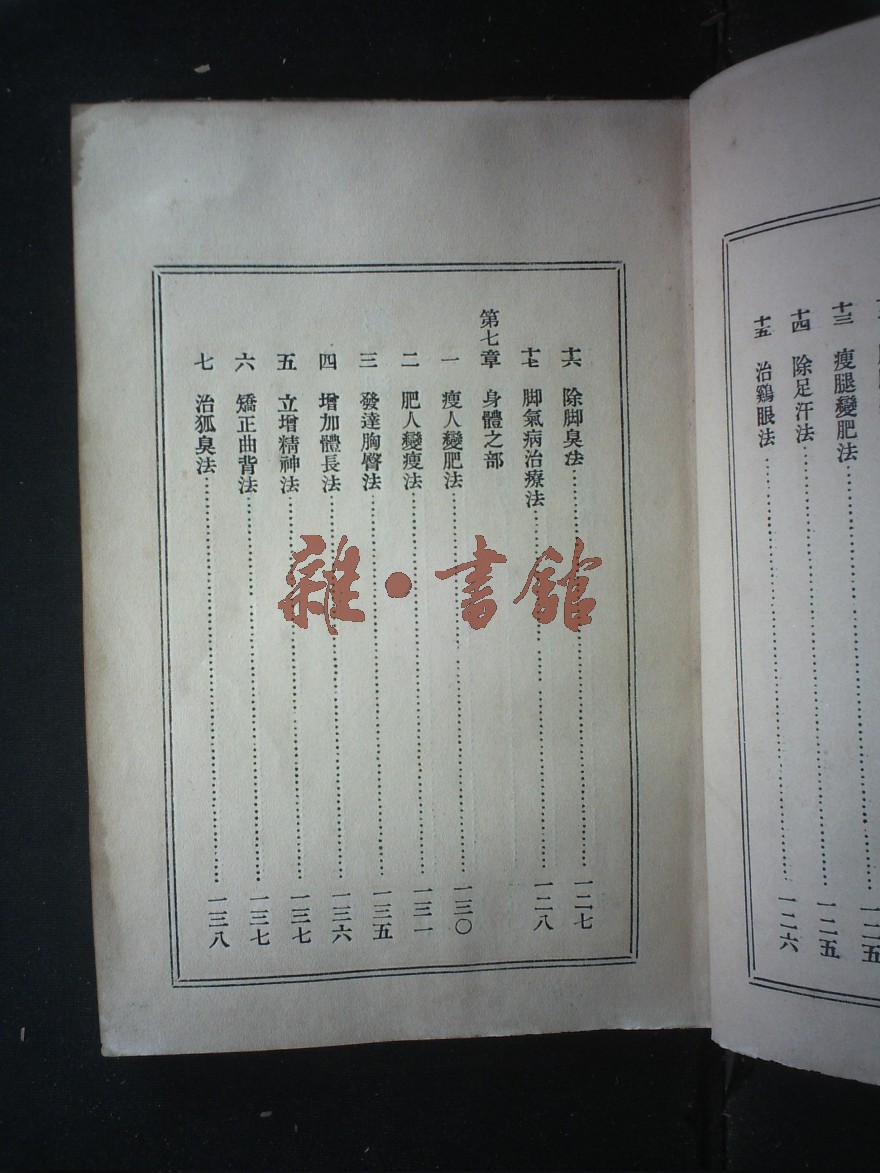 十三 瘦腿變肥法 一二五
十四 除足汗法 一二五
十五 治鷄眼法 一二六
十六 除脚臭法 一二七
十七 脚氣病治療法 一二八
第七章 身體之部
一 瘦人變肥法 一三〇
二 肥人變瘦法 一三一
三 發達胸臀法 一三五
四 增加體長法 一三六
五 立增精神法 一三七
六 矯正曲背法 一三七
七 治狐臭法 一三八
雜·書館